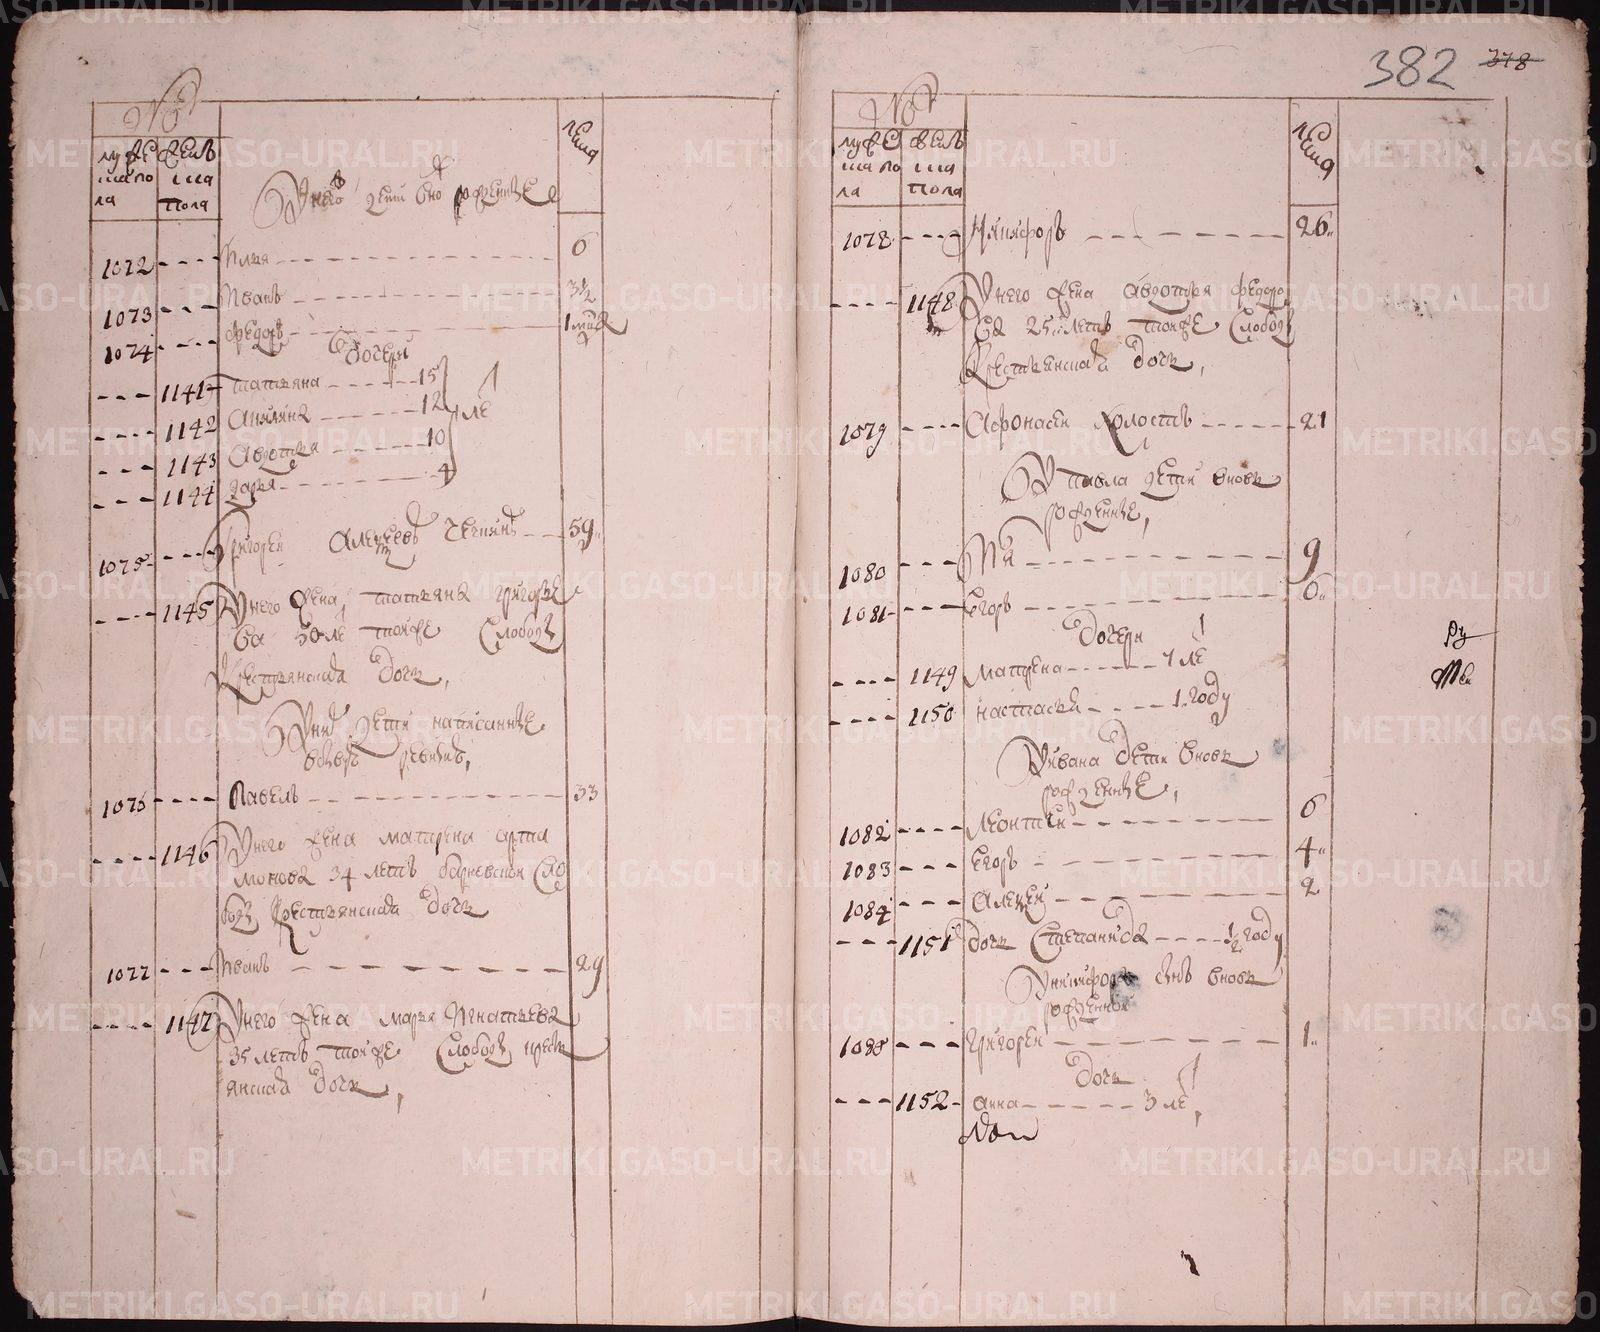 382 378
№
мужеска пола
женска пола
лета
У него дети вно рожденные
1072 Илья 6
1073 Иванъ 3½
1074 Федоръ
Дочери
1141 татьяна 15
1142 Акилина 12 ле
1143 Авдотья 10
1144 дарья 4
1075 Григорей Алексеевъ 59
1145 У него жена татьяна григорье
ва 50 ле тойже слободы
Крестьянская дочь,
У них дети написанные
Павелъ 33
1146 У него жена матрена арта
монова 34 летъ слo
боды Крестьянская дочь
1077 Иванъ 29
1147 У него жена марья Игнатьева
35 летъ тойже слободы кресть
янская дочь,
№
мужеска пола
женска пола
лета
1078 Никифоръ 26
1148 У него жена авдотья федоро
ва 25 летъ тойже слободы
Крестьянская дочь,
1079 Афонасеи холостъ 21
У павла дети вновь
рожденные,
1080 9
1081 Егоръ 6
Дочери
1149 матрена 7 ле
1150 настасья 1 году
У ивана дети вновь
рожденные,
1082 леонтеи 6
1083 Егоръ 4
1084 Алексеи 2
1151 дочь Степанида ½ году
У никифора сынъ вновь
рожденной
1085 григореи 1
Дочь
1152 анна 3 ле,